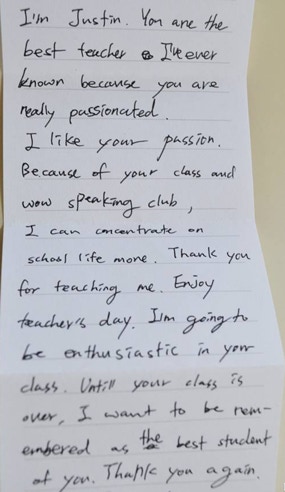 I'm Justin. You are the
best teacher I've ever
known because you are
really passionated.
I like your passion.
Because of your class and
wow speaking club,
I can concentrate on
school life more. Thank you
for teaching me. Enjoy
teacher's day. I'm going to
be enthusiastic in your
class. Untill your class is
over, I want to be rem-
embered as the best student
of you. Thank you again.